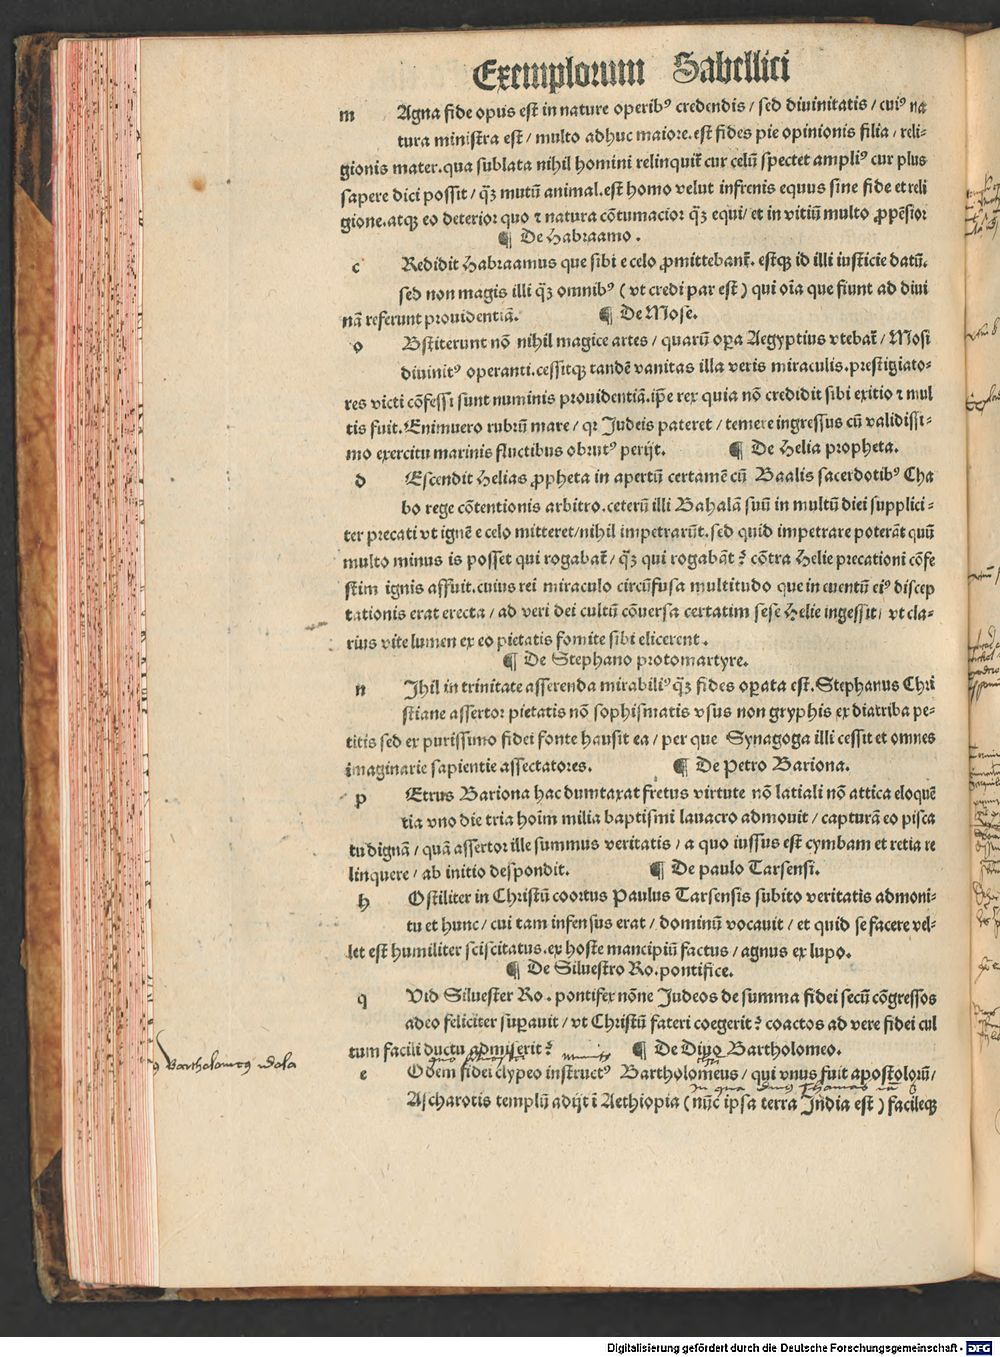 Exemplorum Sabellici
m Agna fide opus est in nature operibꝰ credendis / sed diuinitatis / cuiꝰ na
tura ministra est / multo adhuc maiore. est fides pie opinionis filia / reli-
gionis mater. qua sublata nihil homini relinquit̃ cur celũ spectet ampliꝰ cur plus
sapere dici possit / q̃ꝫ mutũ animal. est homo velut infrenis equus sine fide et reli
gione. atqꝫ eo deterior quo ⁊ natura cõtumacior q̃ꝫ equi / et in vitiũ multo ꝓpẽsior
¶ De Habraamo.
c Redidit Habraamus que sibi e celo ꝓmittebant̃. estqꝫ id illi iusticie datũ.
sed non magis illi q̃ꝫ omnibꝰ (vt credi par est) qui oĩa que fiunt ad diui
nã referunt prouidentiã. ¶ De Mose.
o Bstiterunt nõ nihil magice artes / quarũ oꝑa Aegyptius vtebat̃ / Mosi
diuinitꝰ operanti. cessitqꝫ tandẽ vanitas illa veris miraculis. prestigiato-
res victi cõfessi sunt numinis prouidentiã. ip̃e rex quia nõ credidit sibi exitio ⁊ mul
tis fuit. Enimuero rubrũ mare / qꝛ Judeis pateret / temere ingressus cũ validissi-
mo exercitu marinis fluctibus obrutꝰ perijt. ¶ De Helia propheta.
d Escendit Helias ꝓpheta in apertũ certamẽ cũ Baalis sacerdotibꝰ Cha
bo rege cõtentionis arbitro. ceterũ illi Bahalã suũ in multũ diei supplici-
ter precati vt ignẽ e celo mitteret / nihil impetrarũt. sed quid impetrare poterãt quũ
multo minus is posset qui rogabat̃ / q̃ꝫ qui rogabãt? cõtra Helie precationi cõfe
stim ignis affuit. cuius rei miraculo circũfusa multitudo que in euentũ eiꝰ discep
tationis erat erecta / ad veri dei cultũ cõuersa certatim sese Helie ingessit / vt cla-
rius vite lumen ex eo pietatis fomite sibi elicerent.
¶ De Stephano protomartyre.
n Jhil in trinitate asserenda mirabiliꝰ q̃ꝫ fides oꝑata est. Stephanus Chri
stiane assertor pietatis nõ sophismatis vsus non gryphis ex diatriba pe-
titis sed ex purissimo fidei fonte hausit ea / per que Synagoga illi cessit et omnes
imaginarie sapientie assectatores. ¶ De Petro Bariona.
p Etrus Bariona hac dumtaxat fretus virtute nõ latiali nõ attica eloquẽ
tia vno die tria hoim milia baptismi lauacro admouit / capturã eo pisca
tu dignã / quã assertor ille summus veritatis / a quo iussus est cymbam et retia re
linquere / ab initio despondit. ¶ De paulo Tarsensi.
h Ostiliter in Christũ coortus Paulus Tarsensis subito veritatis admoni-
tu et hunc / cui tam infensus erat / dominũ vocauit / et quid se facere vel-
let est humiliter sciscitatus. ex hoste mancipiũ factus / agnus ex lupo.
¶ De Siluestro Ro. pontifice.
q Vid Siluester Ro. pontifex nõne Judeos de summa fidei secũ cõgressos
adeo feliciter suꝑauit / vt Christũ fateri coegerit? coactos ad vere fidei cul
tum facili ductu admiserit? ¶ De Diuo Bartholomeo.
Bartholomeꝰ idola
e Odem fidei clypeo instructꝰ Bartholomeus / qui vnus fuit apostolorũ /
in qua diuꝰ Thomas
Ascharotis templũ adijt ĩ Aethiopia (nũc ipsa terra India est) facileqꝫ
Digitalisierung gefördert durch die Deutsche Forschungsgemeinschaft - DFG